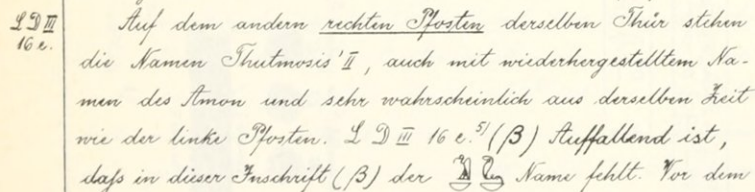 L D III
16 e.
Auf dem andern rechten Pfosten derselben Thür stehen
die Namen Thutmosis' II, auch mit wiederhergestelltem Na-
men des Amon und sehr wahrscheinlich aus derselben Zeit
wie der linke Pfosten. L D III 16 e. 5) (β) Auffallend ist,
daſs in dieser Inschrift (β) der Name fehlt. Vor dem